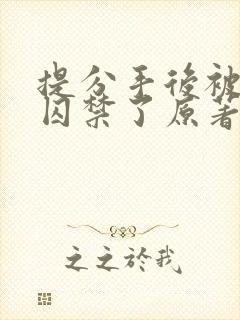 提分手後被
囚禁了原著
之之於我